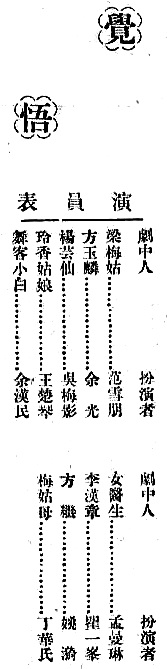 覺悟
演員表
劇中人 扮演者
梁梅姑………范雪朋
方玉麟………余光
楊芸仙………吳梅影
玲香姑娘………王楚琴
舞客小白………余漢民
劇中人 扮演者
女醫生………孟曼琳
李漢章………瞿一峯
方繼………姚漪
梅姑母………丁華氏